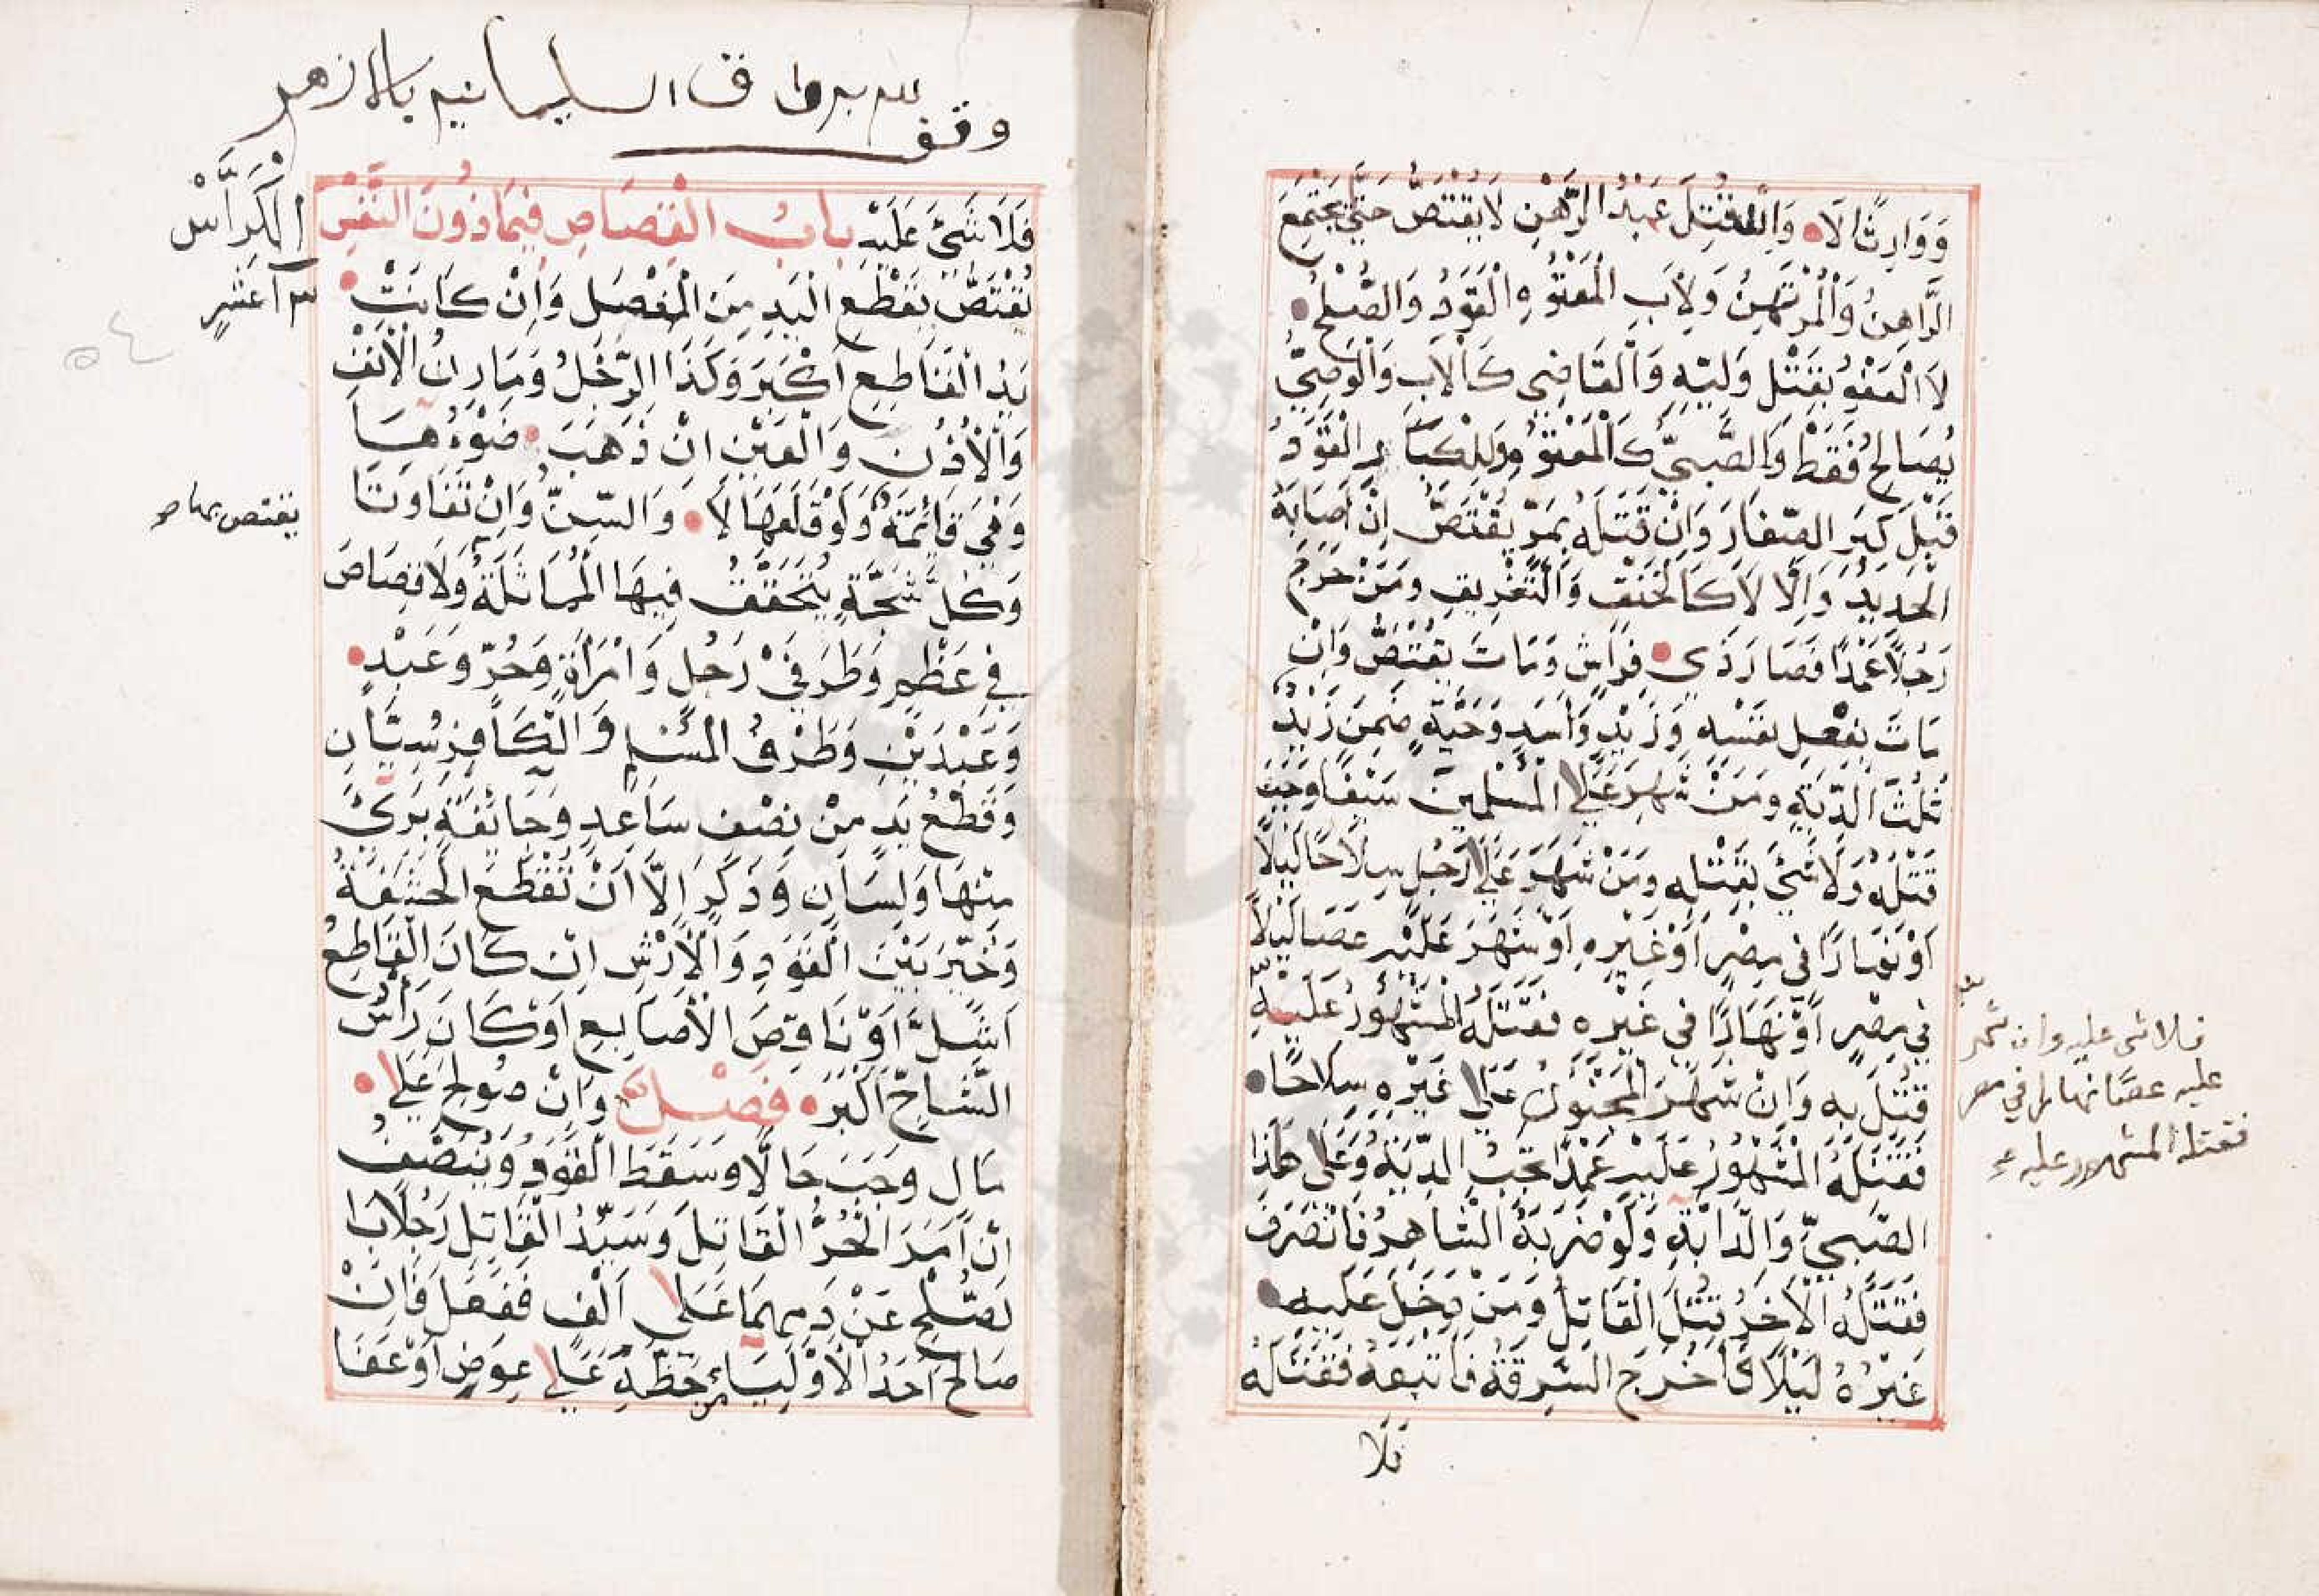 وَوَارِثًا لَا وَإِنْ قُتِلَ عَبْدُ الرَّهْنِ لَا يُقْتَصُّ حَتَّى يَجْتَمِعَ
الرَّاهِنُ وَالْمُرْتَهِنُ وَلِأَبِ الْمَعْتُوهِ الْقَوَدُ وَالصُّلْحُ
لَا الْعَفْوُ بِقَتْلِ وَلِيِّهِ وَالْقَاضِي كَالْأَبِ وَالْوَصِيُّ
يُصَالِحُ فَقَطْ وَالصَّبِيُّ كَالْمَعْتُوهِ وَلِلْكِبَارِ الْقَوَدُ
قَبْلَ كِبَرِ الصِّغَارِ وَإِنْ قَتَلَهُ بِمَرٍّ يُقْتَصُّ إِنْ أَصَابَهُ
الْحَدِيدُ وَإِلَّا لَا كَالْخَنْقِ وَالتَّغْرِيقِ وَمَنْ جَرَحَ
رَجُلًا عَمْدًا فَصَارَ ذَي فِرَاشٍ وَمَاتَ يُقْتَصُّ وَإِنْ
مَاتَ بِفِعْلِ نَفْسِهِ وَزَيْدٍ وَأَسَدٍ وَحَيَّةٍ ضَمِنَ زَيْدٌ
ثُلُثَ الدِّيَةِ وَمَنْ شَهَرَ عَلَى الْمُسْلِمِينَ سَيْفًا وَجَبَ
قَتْلُهُ وَلَا شَيْءَ بِقَتْلِهِ وَمَنْ شَهَرَ عَلَى رَجُلٍ سِلَاحًا لَيْلًا
أَوْ نَهَارًا فِي مِصْرٍ أَوْ غَيْرِهِ أَوْ شَهَرَ عَلَيْهِ عَصًا لَيْلًا
فِي مِصْرٍ أَوْ نَهَارًا فِي غَيْرِهِ فَقَتَلَهُ الْمَشْهُورُ عَلَيْهِ
قُتِلَ بِهِ وَإِنْ شَهَرَ الْمَجْنُونُ عَلَى غَيْرِهِ سِلَاحًا
فَقَتَلَهُ الْمَشْهُورُ عَلَيْهِ عَمْدًا تَجِبُ الدِّيَةُ وَعَلَى هَذَا
الصَّبِيُّ وَالدَّابَّةِ وَلَوْ ضَرَبَهُ الشَّاهِرُ فَانْصَرَفَ
فَقَتَلَهُ الْآخَرُ قُتِلَ الْقَاتِلُ وَمَنْ دَخَلَ عَلَيْهِ
غَيْرُهُ لَيْلًا فَأَخْرَجَ السَّرِقَةَ فَاتَّبَعَهُ فَقَتَلَهُ
فَلَا
فلا شى عليه وان شهر
عليه عصًا نهارا في مصر
فقتله المشهور عليه
وقف لله برواق السليمانيه بالازهر
الْكُرَّاسْ
عَشَرٍ
٥٤
فَلَا شَيْءَ عَلَيْهِ بَابُ الْقِصَاصِ فِيمَا دُونَ النَّفْسِ
يُقْتَصُّ بِقَطْعِ الْيَدِ مِنَ الْمَفْصِلِ وَإِنْ كَانَتْ
يَدُ الْقَاطِعِ أَكْبَرَ وَكَذَا الرِّجْلُ وَمَارِنُ الْأَنْفِ
وَالْأُذُنَ وَالْعَيْنِ إِنْ ذَهَبَ ضَوْءُهَا
وَهِيَ قَائِمَةٌ وَلَوْ قَلَعَهَا لَا وَالسِّنُّ وَإِنْ تَفَاوَتَا
يقتص بهما
وَكُلُّ شَجَّةٍ يَتَحَقَّقُ فِيهَا الْمُمَاثَلَةُ وَلَا قِصَاصَ
فِي عَظْمٍ وَطَرَفَيْ رَجُلٍ وَامْرَأَةٍ وَحُرٍّ وَعَبْدٍ
وَعَبْدَيْنِ وَطَرْفُ الْمُسْلِمِ وَالْكَافِرِ سِيَّانِ
وَقَطْعُ يَدٍ مِنْ نِصْفِ سَاعِدٍ وَجَائِفَةٍ بَرِئَ
مِنْهَا وَلِسَانٍ وَذَكَرٍ إِلَّا أَنْ تُقْطَعَ الْحَشَفَةُ
وَخُيِّرَ بَيْنَ الْقَوَدِ وَالْأَرْشِ إِنْ كَانَ الْقَاطِعُ
أَشَلَّ أَوْ نَاقِصَ الْأَصَابِعِ أَوْ كَانَ رَأْسُ
الشَّاجِّ أَكْبَرَ فَصْلٌ وَإِنْ صُولِحَ عَلَى
مَالٍ وَجَبَ حَالًّا وَسَقَطَ الْقَوَدُ وَيُنَصَّفُ
إِنْ أَمَرَ الْحُرُّ الْقَاتِلَ وَسَيِّدُ الْقَاتِلِ رَجُلًا بِا
لصُّلْحِ عَنْ دَمِهِمَا عَلَى أَلْفٍ فَفَعَلَ فَإِنْ
صَالَحَ أَحَدُ الْأَوْلِيَاءِ مِنْ حَظِّهِ عَلَى عِوَضٍ أَوْ عَفَا